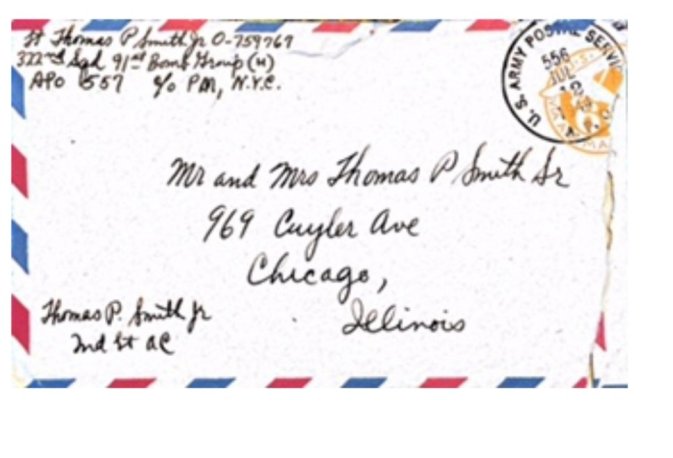 Lt Thomas P Smith Jr O-759767
322nd Sqd 91st Bomb Group (H)
APO 557 c/o PM, N.Y.C.
U.S. ARMY POSTAL SERVICE
556
JUL
12
Mr and Mrs Thomas P Smith Sr
969 Cuyler Ave
Chicago,
Illinois
Thomas P. Smith Jr
2nd Lt AC